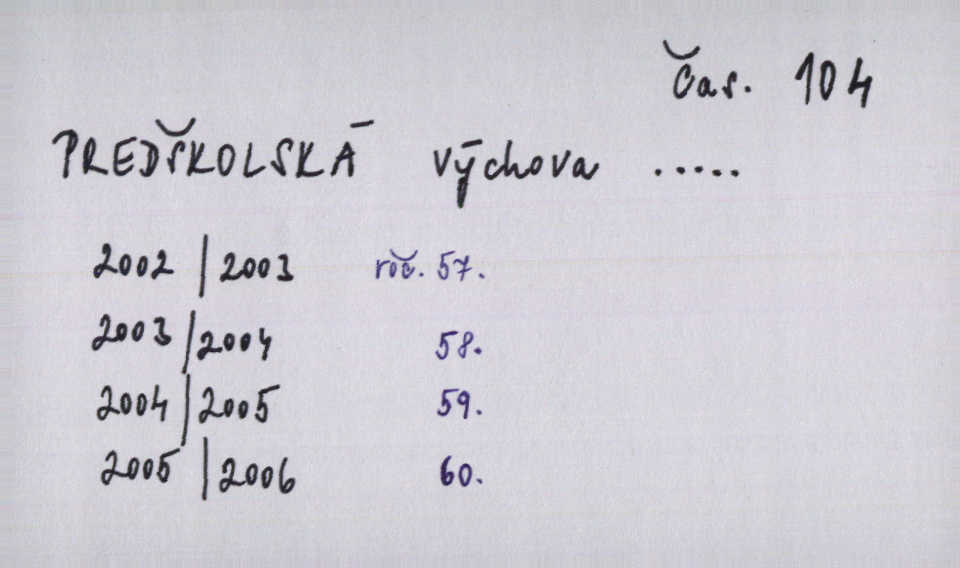 Čas. 104
PREDŠKOLSKÁ výchova .....
2002 | 2003 roč. 57.
2003 | 2004 58.
2004 | 2005 59.
2005 | 2006 60.